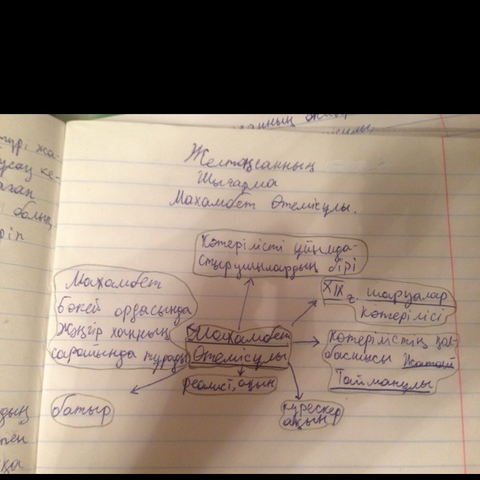 Желтоқсанның
Шығарма
Махамбет Өтемісұлы.
Көтерілісті ұйымда-
стырушылардың бірі
Махамбет
Бөкей ордасында
Жәңгір ханның
сарайында тұрады
XIX ғ. шаруалар
көтерілісі
Махамбет
Өтемісұлы
көтерілістің қол-
басшысы
Тайманұлы
реалист, ақын
батыр
күрескер
ақын